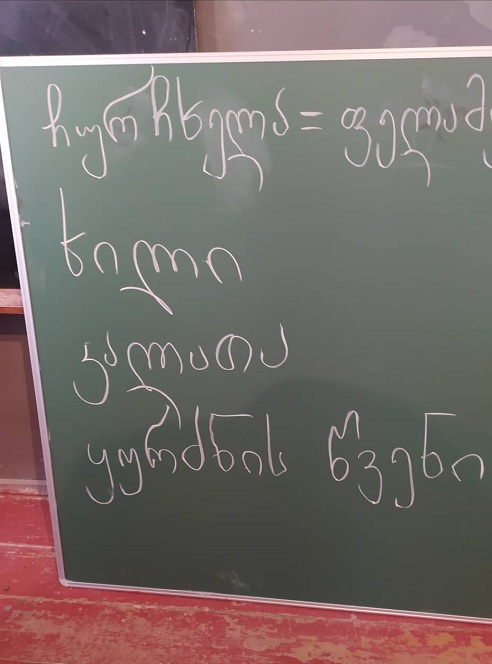 ჩურჩხელა = ფელამ
ხილი
კალათა
ყურძნის წვენი